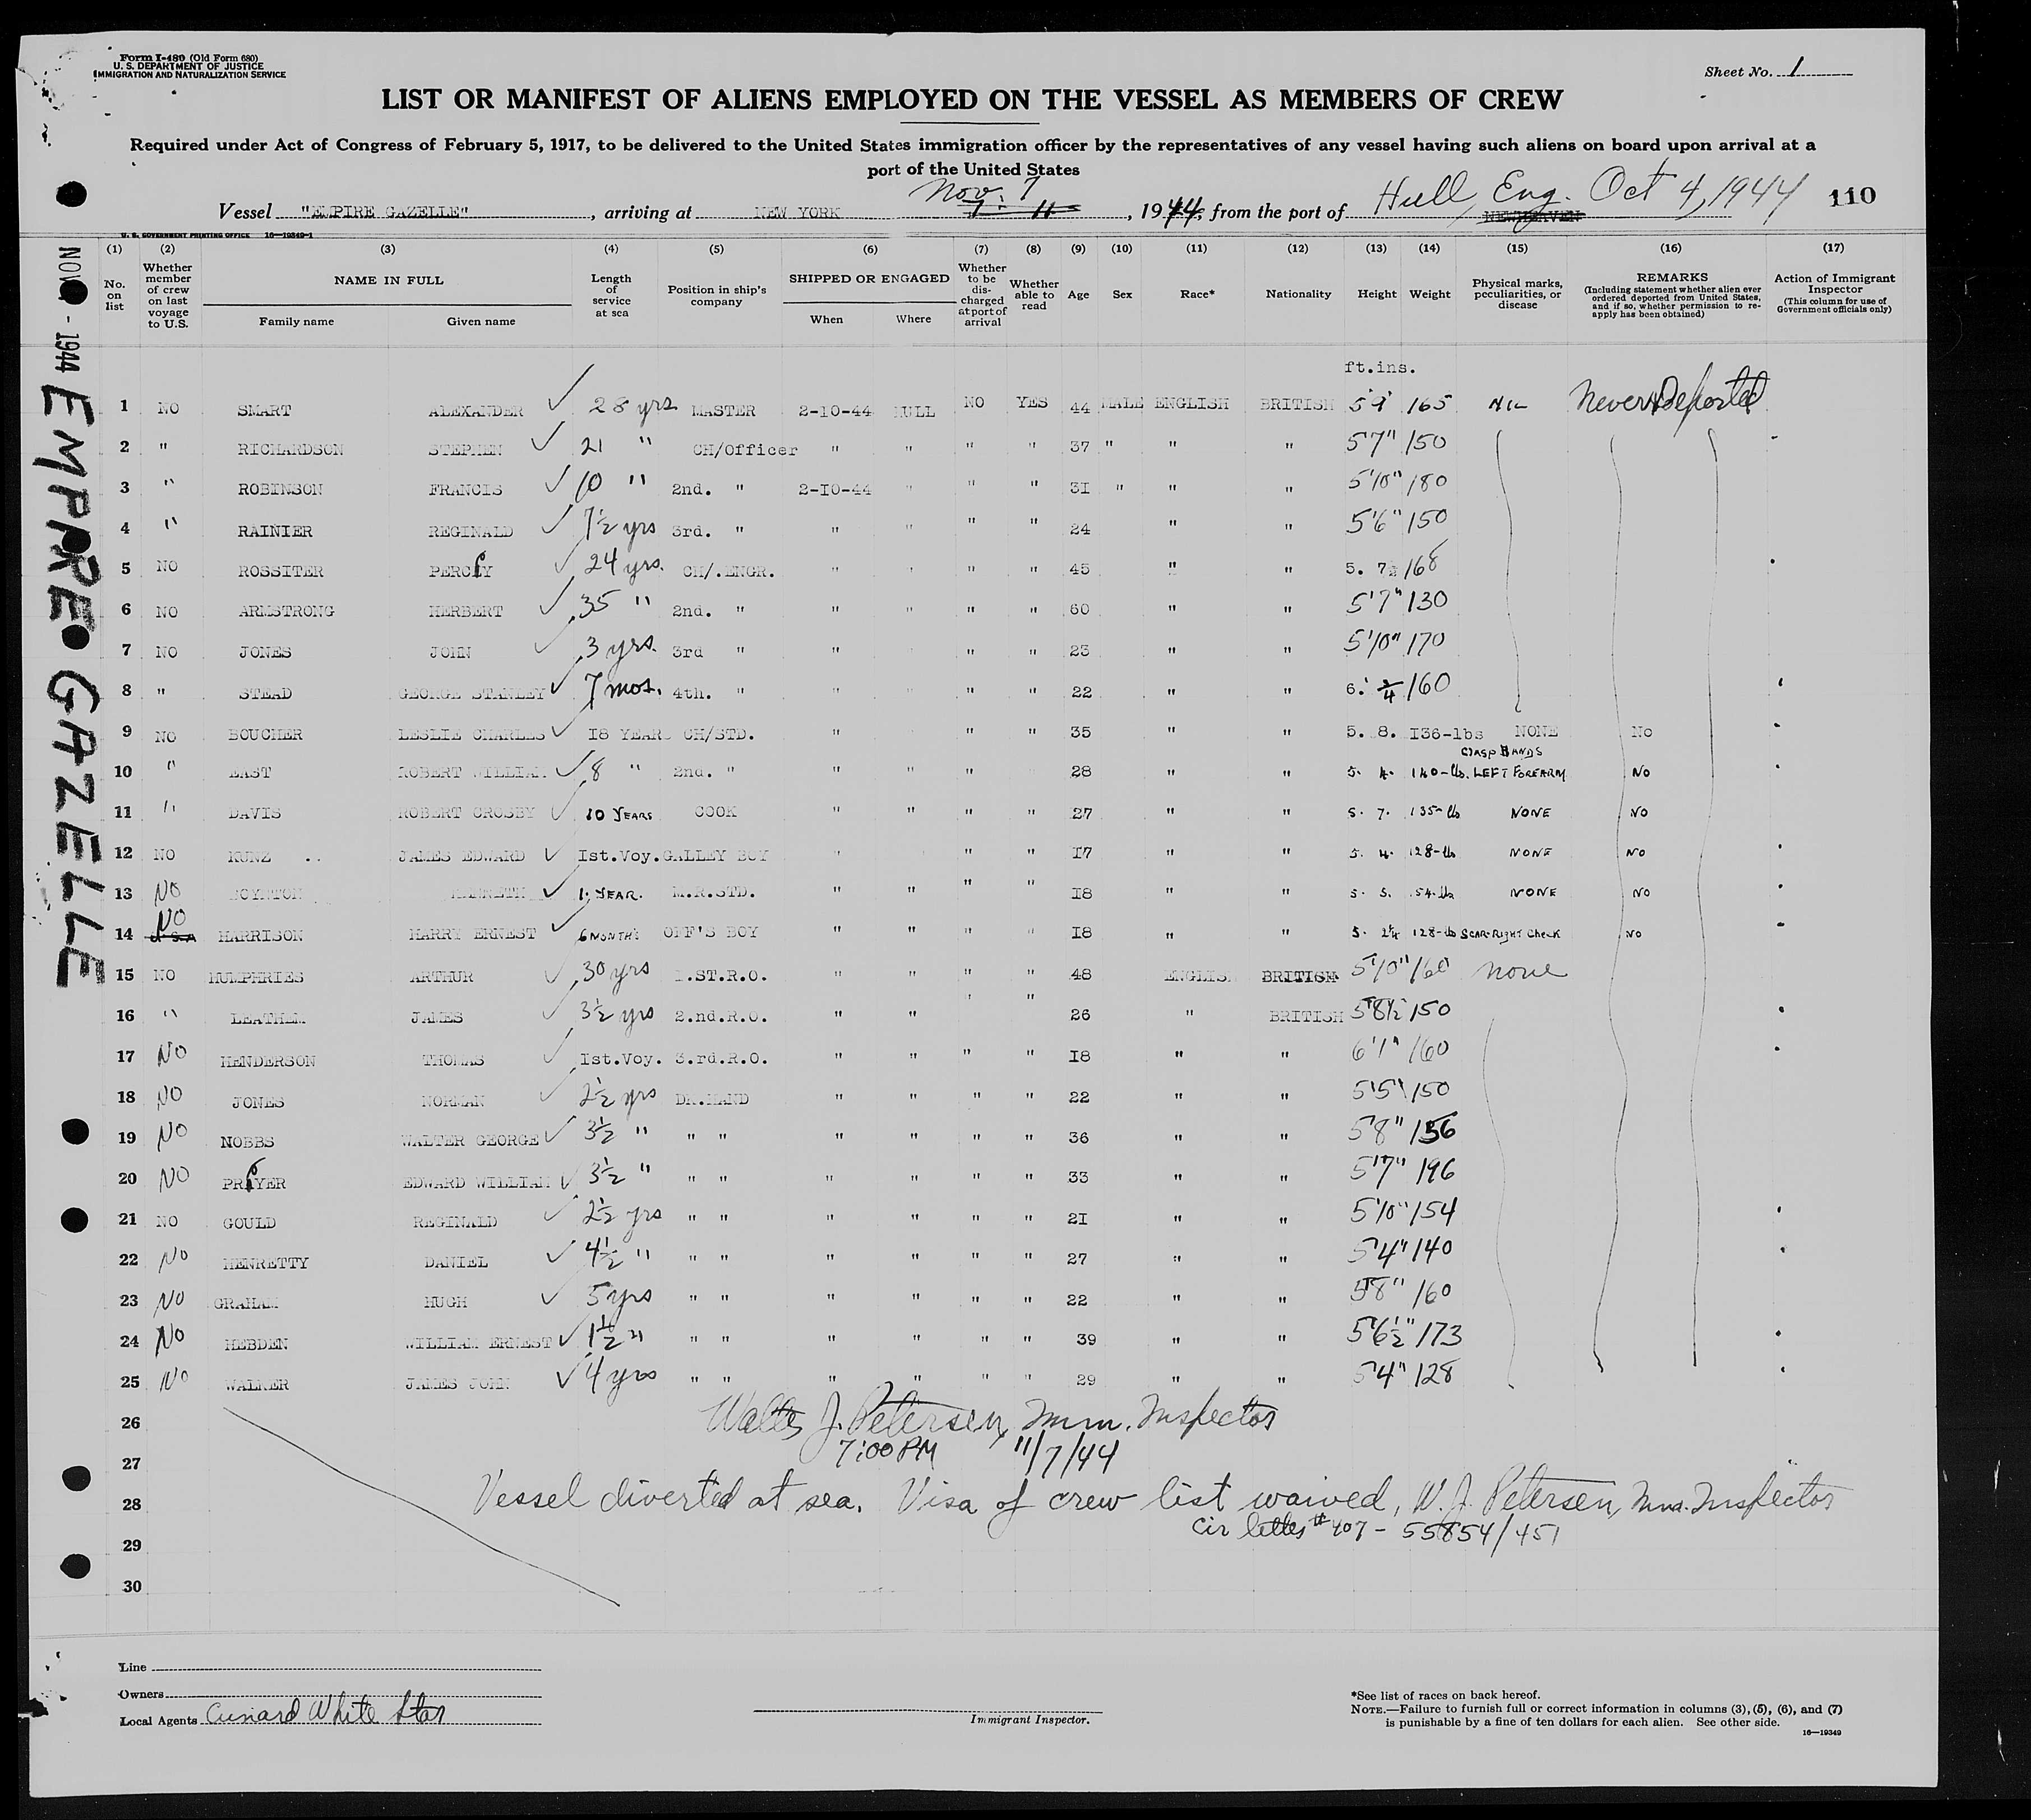 Form I-480 (Old Form 680)
U. S. DEPARTMENT OF JUSTICE
IMMIGRATION AND NATURALIZATION SERVICE
Sheet No. 1
LIST OR MANIFEST OF ALIENS EMPLOYED ON THE VESSEL AS MEMBERS OF CREW
Required under Act of Congress of February 5, 1917, to be delivered to the United States immigration officer by the representatives of any vessel having such aliens on board upon arrival at a
port of the United States
Vessel "EMPIRE GAZELLE", arriving at NEW YORK Nov. 7, 1944 from the port of Hull, Eng. Oct 4, 1944 110
NEWHAVEN
U. S. GOVERNMENT PRINTING OFFICE 16—19349-1
NOV - 1944 EMPIRE GAZELLE
(1) (2) (3) (4) (5) (6) (7) (8) (9) (10) (11) (12) (13) (14) (15) (16) (17)
No. on list
Whether member of crew on last voyage to U.S.
NAME IN FULL
Family name Given name
Length of service at sea
Position in ship's company
SHIPPED OR ENGAGED
When Where
Whether to be discharged at port of arrival
Whether able to read
Age
Sex
Race*
Nationality
Height
Weight
Physical marks, peculiarities, or disease
REMARKS
(Including statement whether alien ever ordered deported from United States, and if so, whether permission to re-apply has been obtained)
Action of Immigrant Inspector
(This column for use of Government officials only)
ft.ins.
1 NO SMART ALEXANDER 28 yrs MASTER 2-10-44 HULL NO YES 44 MALE ENGLISH BRITISH 5'9" 165 NIL Never Deported
2 " RICHARDSON STEPHEN 21 " CH/Officer " " " " 37 " " " 5'7" 150
3 " ROBINSON FRANCIS 10 " 2nd. " 2-10-44 " " " 31 " " " 5'10" 180
4 " RAINIER REGINALD 7½ yrs 3rd. " " " " " 24 " " 5'6" 150
5 NO ROSSITER PERCY 24 yrs. CH/.ENGR. " " " " 45 " " 5. 7½ 168
6 NO ARMSTRONG HERBERT 35 " 2nd. " " " " " 60 " " 5'7" 130
7 NO JONES JOHN 3 yrs. 3rd " " " " " 23 " " 5'10" 170
8 " STEAD GEORGE STANLEY 7 mos. 4th. " " " " " 22 " " 6' ¾ 160
9 NO BOUCHER LESLIE CHARLES 18 YEARS CH/STD. " " " " 35 " " 5. 8. 136-lbs NONE No
10 " EAST ROBERT WILLIAM 8 " 2nd. " " " " " 28 " " 5. 4. 140-lb. CLASP HANDS LEFT FOREARM NO
11 " DAVIS ROBERT CROSBY 10 YEARS COOK " " " " 27 " " 5. 7. 135-lb NONE NO
12 NO KUNZ JAMES EDWARD 1st.Voy. GALLEY BOY " " " " 17 " " 5. 4. 128-lb NONE NO
13 NO KENNETH 1. YEAR. M.R.STD. " " " " 18 " " 5. 5. NONE NO
14 NO HARRISON HARRY ERNEST 6 MONTHS OFF'S BOY " " " " 18 " " 5. 2¼ 128-lb SCAR-RIGHT CHEEK NO
15 NO HUMPHRIES ARTHUR 30 yrs 1.ST.R.O. " " " " 48 ENGLISH BRITISH 5'10" 160 none
16 " LEATHEM JAMES 3½ yrs 2.nd.R.O. " " " " 26 " BRITISH 5'8½ 150
17 NO HENDERSON THOMAS 1st.Voy. 3.rd.R.O. " " " " 18 " " 6'1" 160
18 NO JONES NORMAN 2½ yrs DK.HAND " " " " 22 " " 5'5" 150
19 NO NOBBS WALTER GEORGE 3½ " " " " " " " 36 " " 5'8" 156
20 NO PRYER EDWARD WILLIAM 3½ " " " " " " " 33 " " 5'7" 196
21 NO GOULD REGINALD 2½ yrs " " " " " " 21 " " 5'10" 154
22 NO HENRETTY DANIEL 4½ " " " " " " " 27 " " 5'4" 140
23 NO GRAHAM HUGH 5 yrs " " " " " " 22 " " 5'8" 160
24 NO HEBDEN WILLIAM ERNEST 1½ " " " " " " " 39 " " 5'6½" 173
25 NO WALKER JAMES JOHN 4 yrs " " " " " " 29 " " 5'4" 128
26 Walter J. Petersen, Imm. Inspector
27 7:00 PM 11/7/44
28 Vessel diverted at sea. Visa of crew list waived, W. J. Petersen, Imm. Inspector
Cir letter #407 - 55854/451
29
30
Line
Owners
Local Agents Cunard White Star
Immigrant Inspector.
*See list of races on back hereof.
NOTE.—Failure to furnish full or correct information in columns (3), (5), (6), and (7)
is punishable by a fine of ten dollars for each alien. See other side.
16—19349